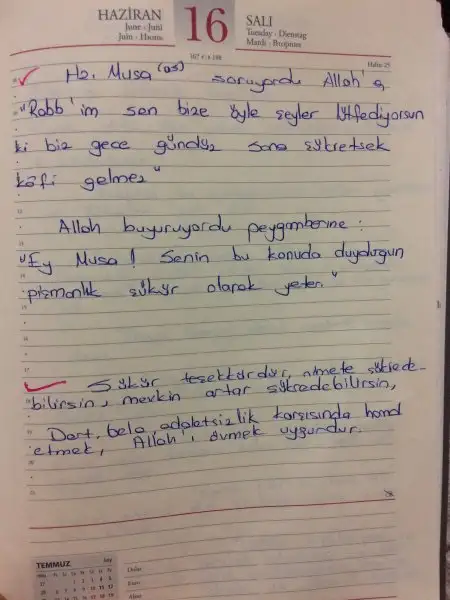 HAZİRAN
June - Juni
Juin - Июнь
16
SALI
Tuesday - Dienstag
Mardi - Вторник
167 + 198
Hafta 25
Hz. Musa (as) soruyordu Allah'a
"Robb'im sen bize öyle şeyler lütfediyorsun
ki biz gece gündüz sana şükretsek
kâfi gelmez"
Allah buyuruyordu peygamberine :
"Ey Musa! Senin bu konuda duyduğun
pişmanlık şükür olarak yeter."
Şükür teşekkürdür, nimete şükrede-
bilirsin, mevkin artar şükredebilirsin,
Dert, bela, adaletsizlik karşısında hamd
etmek, Allah'ı övmek uygundur.
TEMMUZ
July
Dolar
Euro
Altın